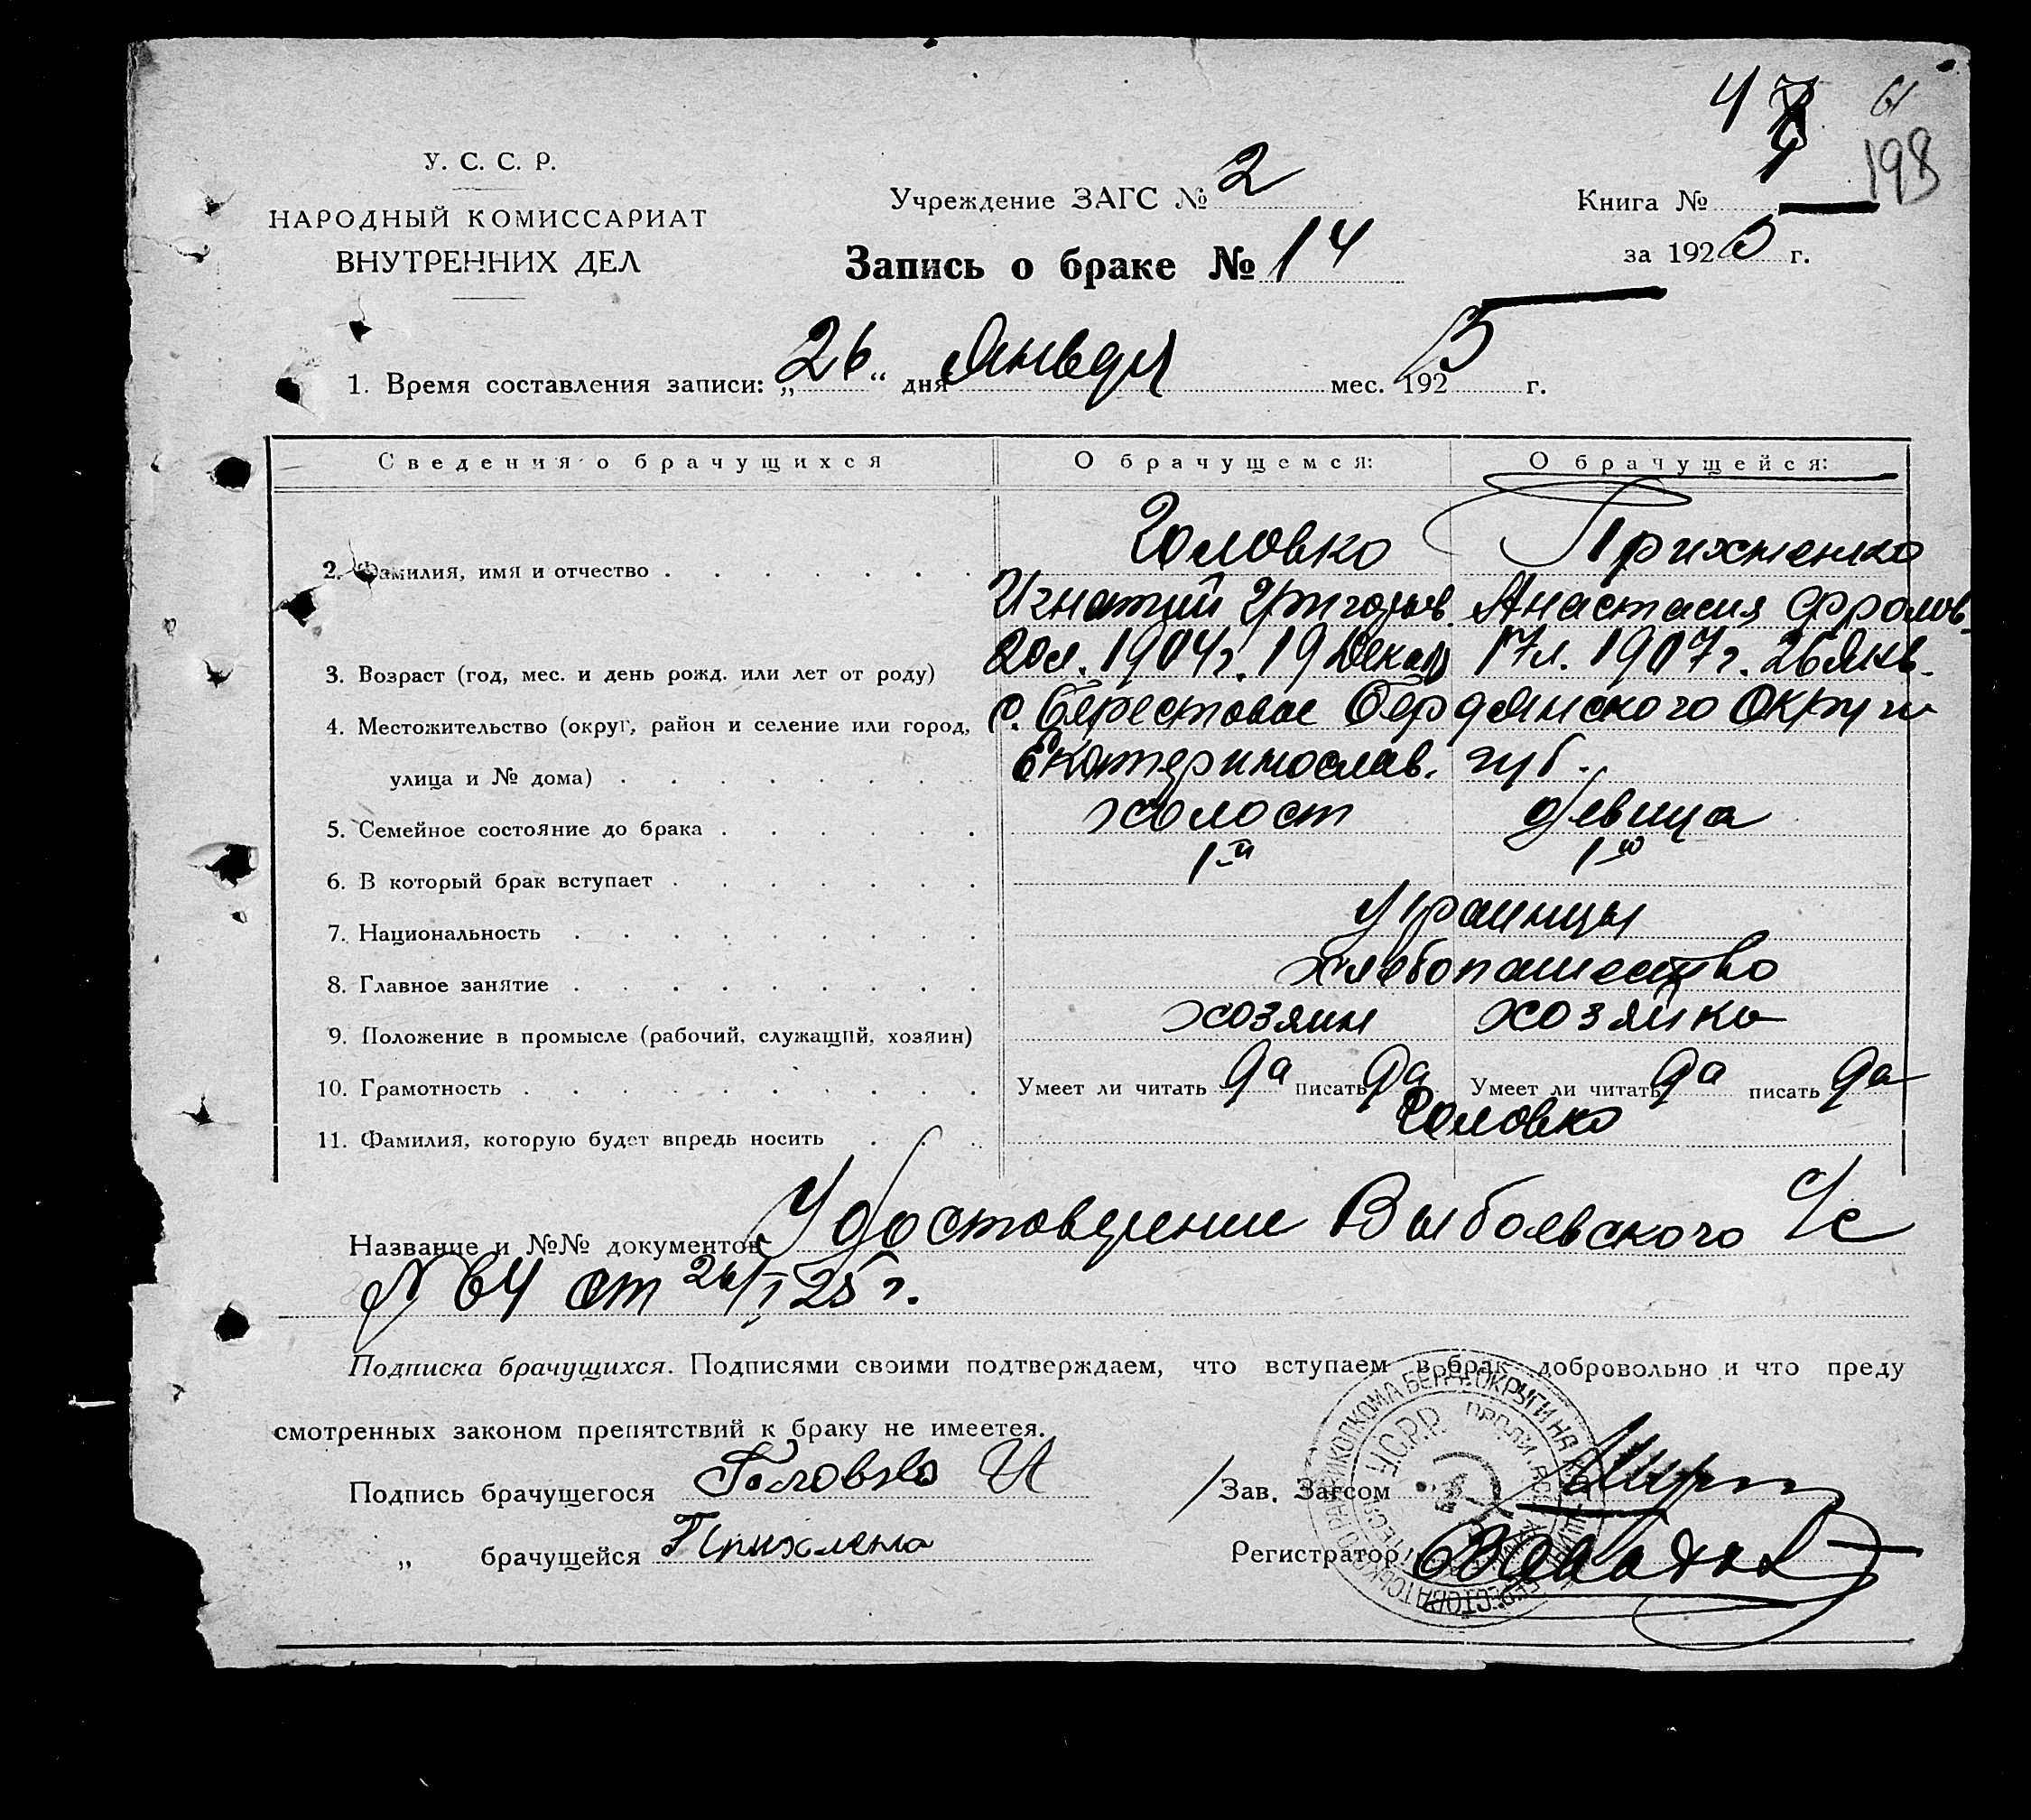 61
198
У. С. С. Р.
НАРОДНЫЙ КОМИССАРИАТ
ВНУТРЕННИХ ДЕЛ
Учреждение ЗАГС № 2
Книга №
Запись о браке № 14
за 1925 г.
1. Время составления записи: „26“ дня Января мес. 1925 г.
Сведения о брачущихся О брачущемся: О брачущейся:
Головко
2. Фамилия, имя и отчество
Игнатий Григорьев. Анастасия Фролов.
3. Возраст (год, мес. и день рожд. или лет от роду) 20 л. 1904 г. 19 Декаб 17 л. 1907 г. 26 Янв.
4. Местожительство (округ, район и селение или город, с. Берестовое Бердянского Округи
улица и № дома) Екатеринослав. губ.
5. Семейное состояние до брака холост девица
6. В который брак вступает 1-й 1-й
7. Национальность Украинцы
8. Главное занятие хлебопашество
9. Положение в промысле (рабочий, служащий, хозяин) хозяин хозяйка
10. Грамотность Умеет ли читать да писать да Умеет ли читать да писать да
11. Фамилия, которую будет впредь носить Головко
Название и №№ документов Удостоверение С/с
№ 64 от 26/I 25 г.
Подписка брачущихся. Подписями своими подтверждаем, что вступаем в брак добровольно и что преду
смотренных законом препятствий к браку не имеетея.
Подпись брачущегося Головко И
Зав. Загсом
„ брачущейся
Регистратор
У.С.Р.Р.